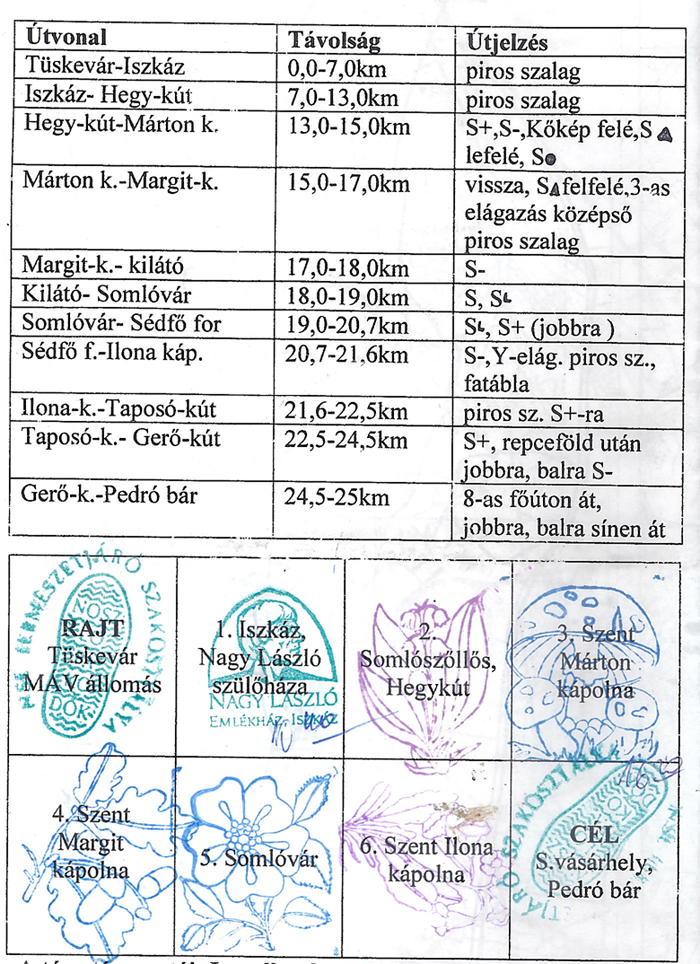 Útvonal Távolság Útjelzés
Tüskevár-Iszkáz 0,0-7,0km piros szalag
Iszkáz- Hegy-kút 7,0-13,0km piros szalag
Hegy-kút-Márton k. 13,0-15,0km S+,S-,Kőkép felé,S▲
lefelé, S●
Márton k.-Margit-k. 15,0-17,0km vissza, S▲felfelé,3-as
elágazás középső
piros szalag
Margit-k.- kilátó 17,0-18,0km S-
Kilátó- Somlóvár 18,0-19,0km S, S
Somlóvár- Sédfő for 19,0-20,7km S, S+ (jobbra )
Sédfő f.-Ilona káp. 20,7-21,6km S-,Y-elág. piros sz.,
fatábla
Ilona-k.-Taposó-kút 21,6-22,5km piros sz. S+-ra
Taposó-k.- Gerő-kút 22,5-24,5km S+, repceföld után
jobbra, balra S-
Gerő-k.-Pedró bár 24,5-25km 8-as főúton át,
jobbra, balra sínen át
TERMÉSZETJÁRÓ SZAKOSZTÁLYA
RAJT
Tüskevár
MÁV állomás
DÓK
1. Iszkáz,
Nagy László
szülőháza
NAGY LÁSZLÓ
EMLÉKHÁZ, ISZKÁZ
2.
Somlószőllős,
Hegykút
3. Szent
Márton
kápolna
4. Szent
Margit
kápolna
5. Somlóvár
6. Szent Ilona
kápolna
CÉL
S.vásárhely,
Pedró bár